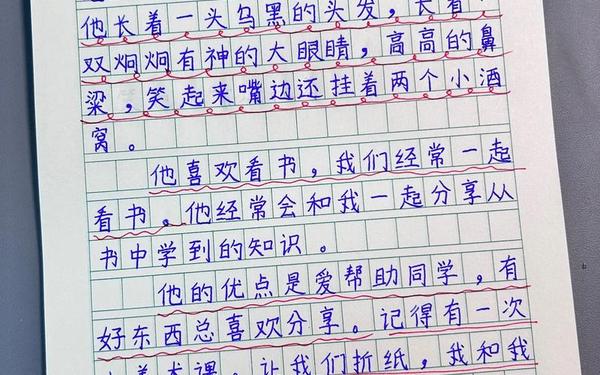 他长着一头乌黑的头发，长着
双炯炯有神的大眼睛，高高的鼻
梁，笑起来嘴边还挂着两个小酒
窝。
他喜欢看书，我们经常一起
看书。他经常会和我一起分享从
书中学到的知识。
他的优点是爱帮助同学，有
好东西总喜欢分享。记得有一次
美术课，让我们折纸，我和我